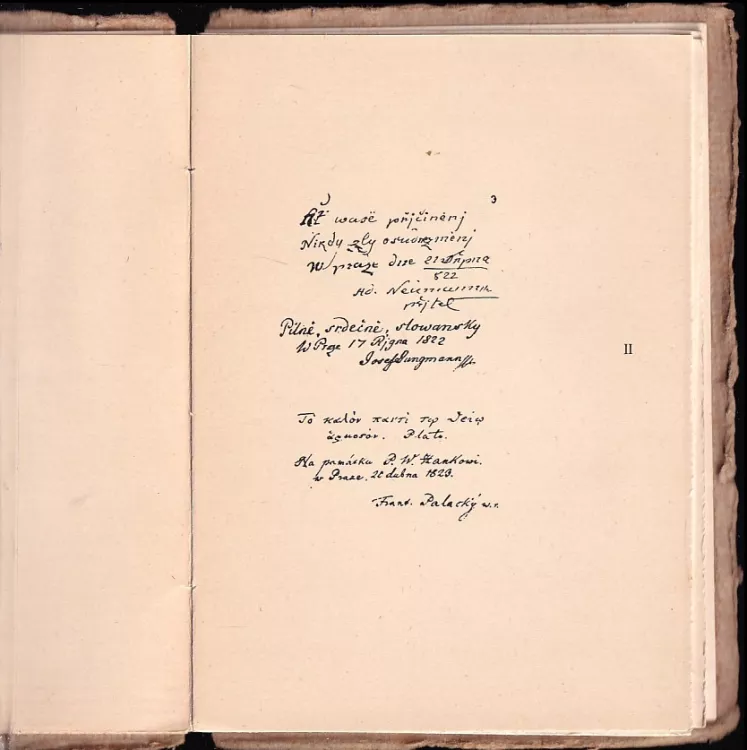 3
Ať wasë přjčiněnj
Nikdy zly
W praze dne 21 Řigna
822
Ad. Neümann
přjtel
Pilně, srdečně, slowansky
W Praze 17 Řjgna 1822
Josef Jungmann
II
Τὸ καλὸν παντὶ τῷ θείῳ
ἁρμοσόν. Plato.
Na památku P. W. Hankowi.
w Praze, 21 dubna 1823.
Frant. Palacký w.r.